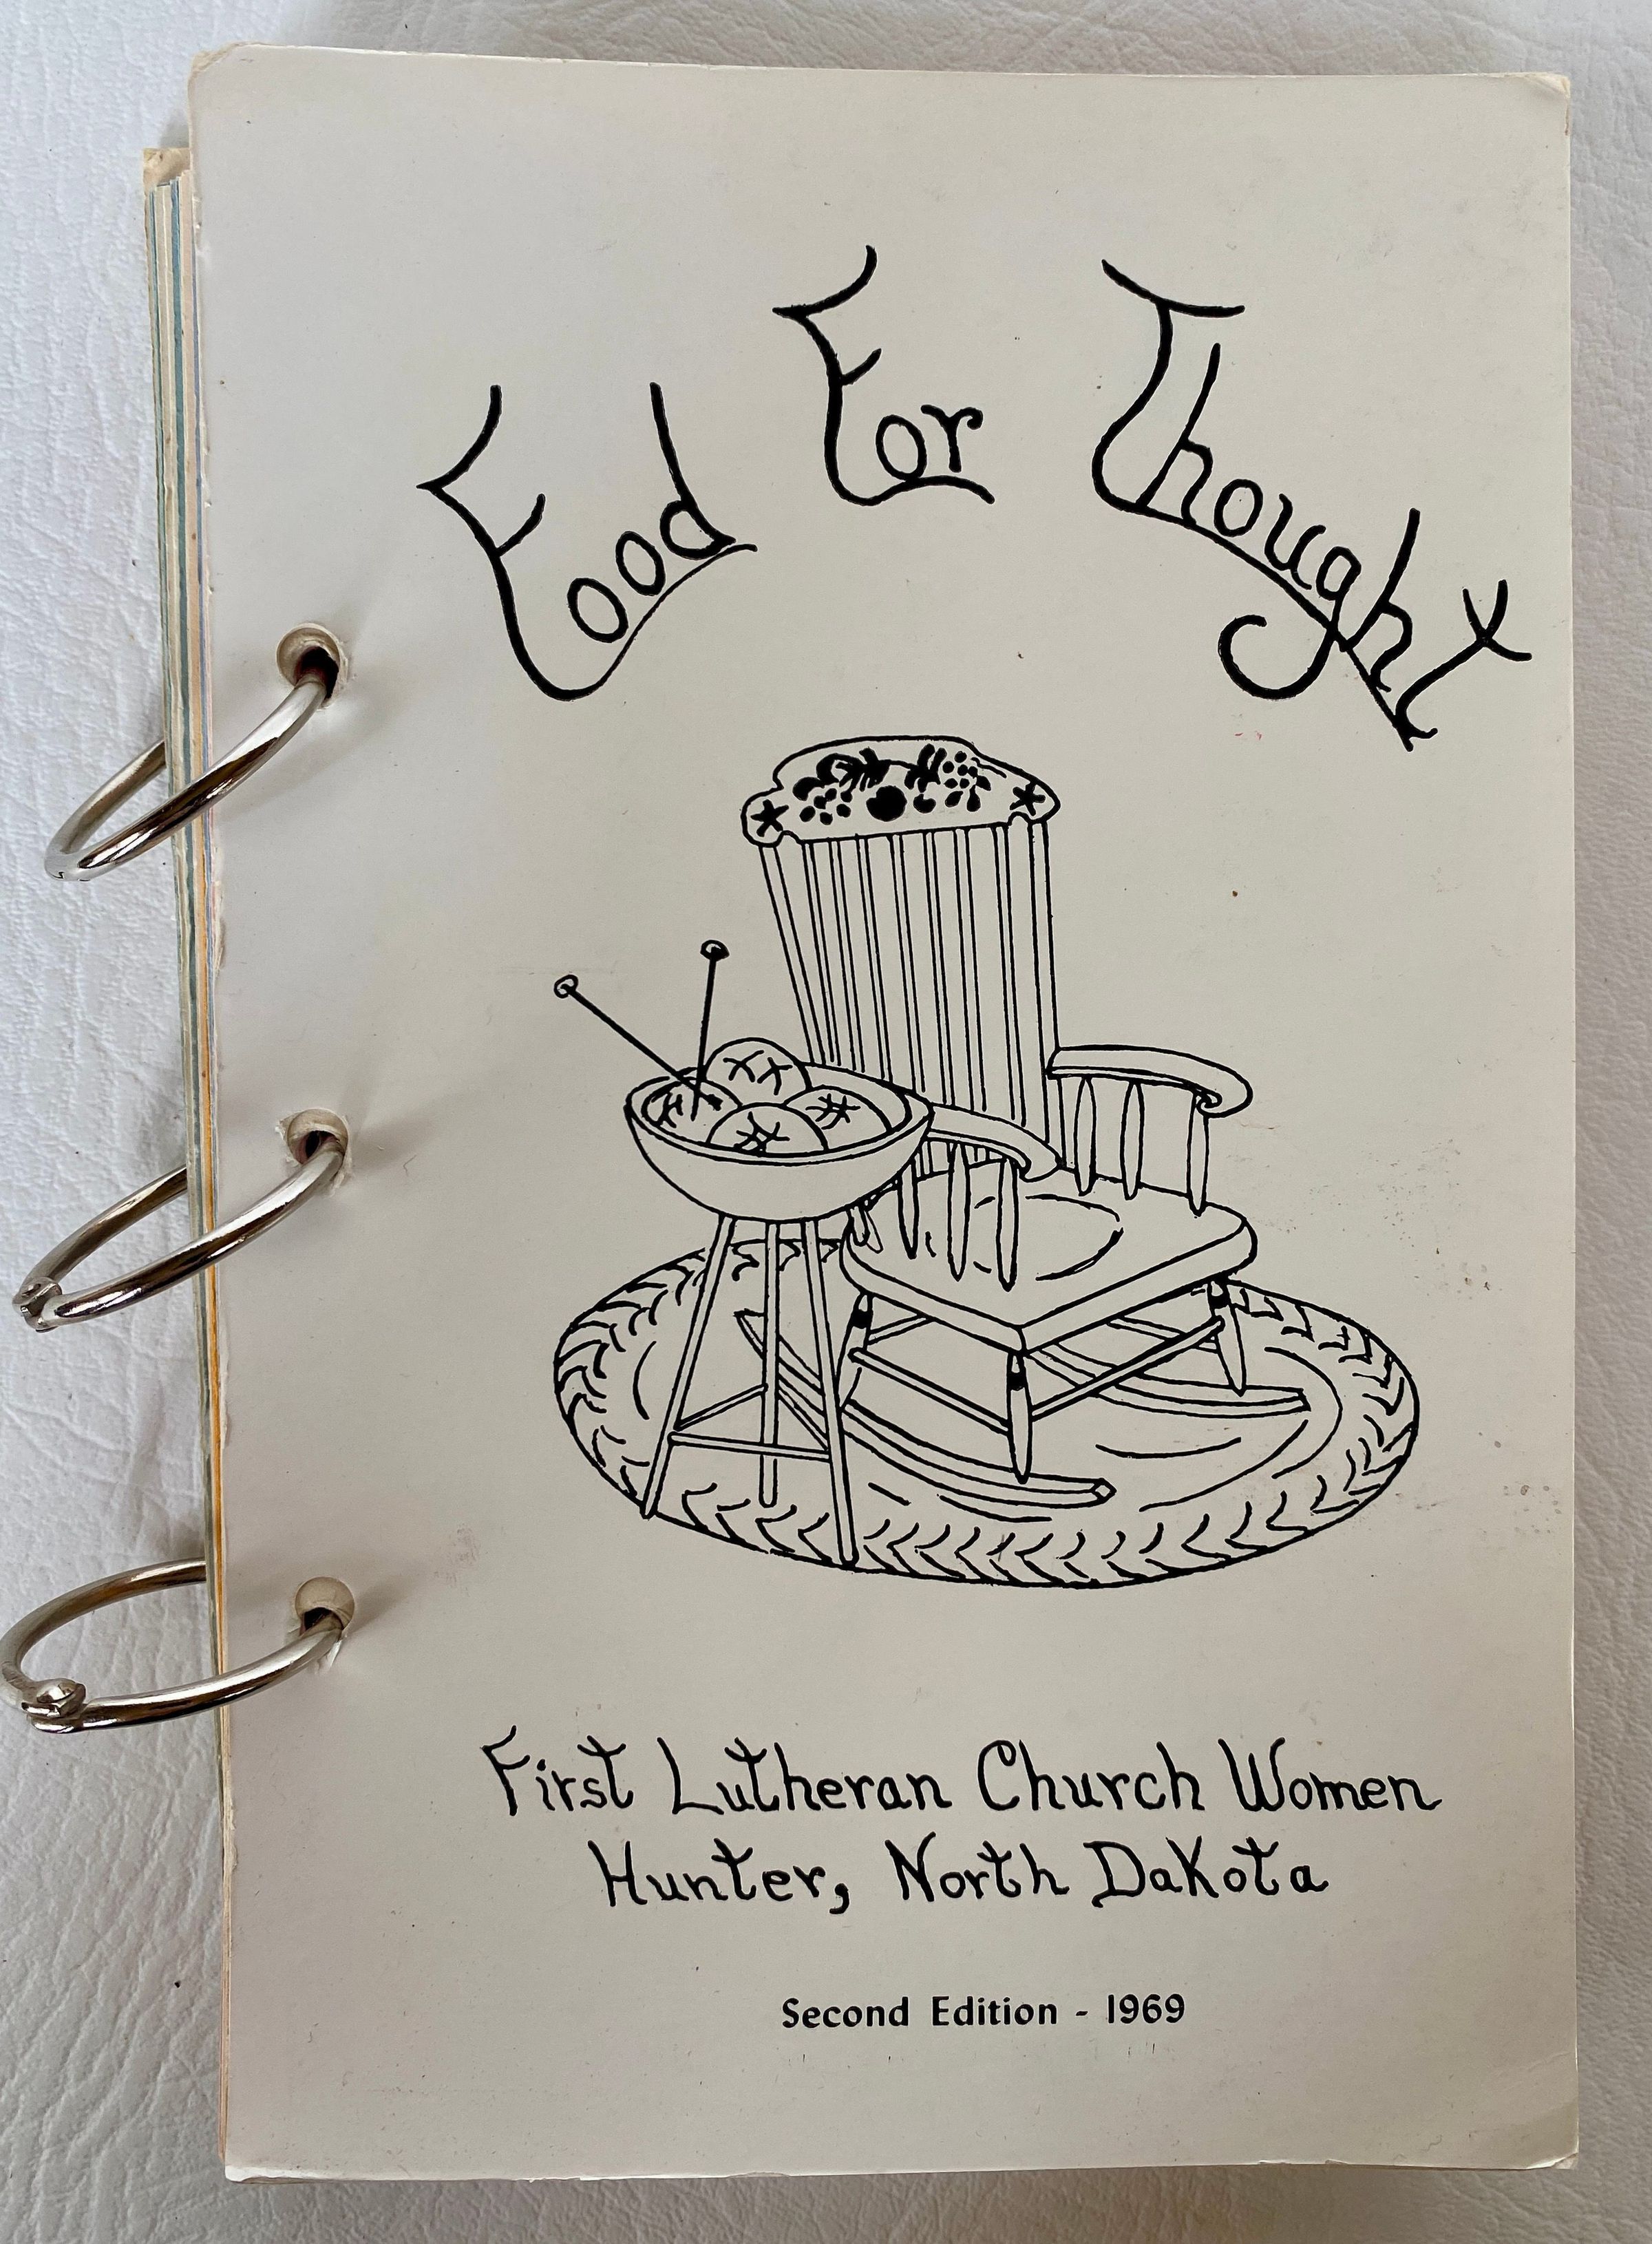 Food For Thought
First Lutheran Church Women
Hunter, North Dakota
Second Edition - 1969